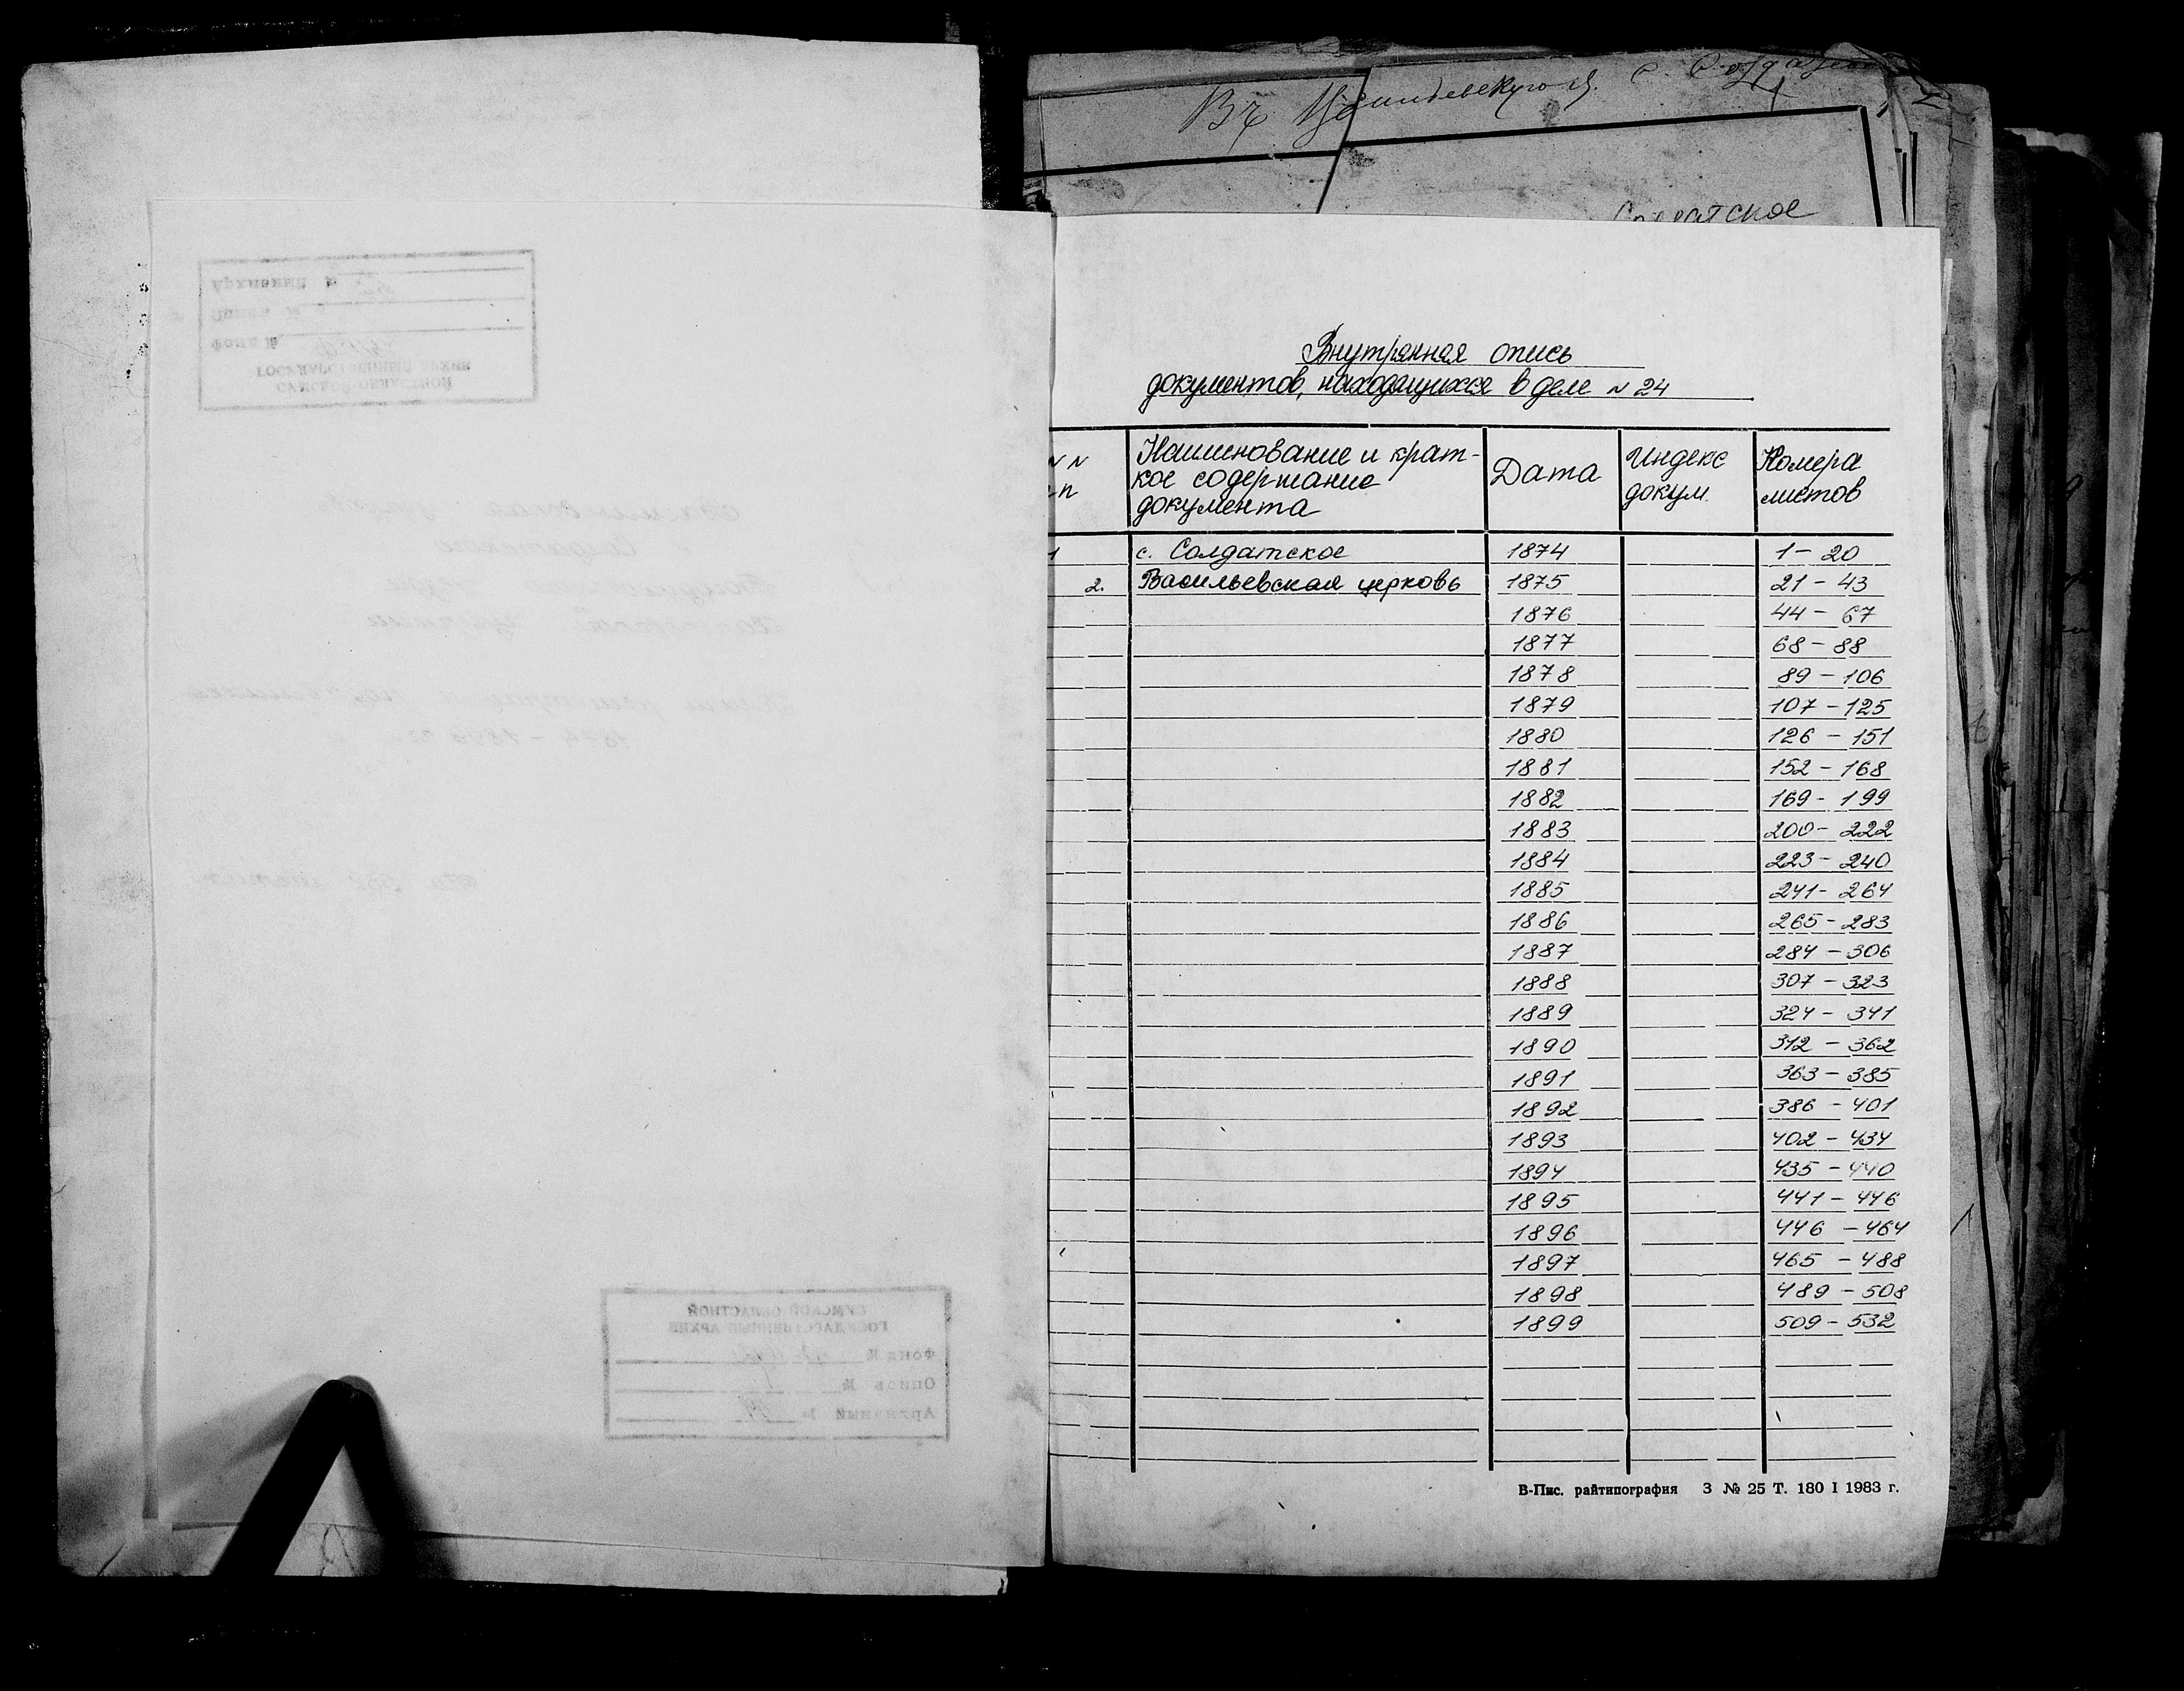 Солдатское
Внутренная опись
документов, находящихся в деле N 24
N N
п
Наименование и крат-
кое содержание
документа
Дата
Индекс
докум.
Номера
листов
1 с. Солдатское 1874 1 - 20
2. Васильевская церковь 1875 21 - 43
1876 44 - 67
1877 68 - 88
1878 89 - 106
1879 107 - 125
1880 126 - 151
1881 152 - 168
1882 169 - 199
1883 200 - 222
1884 223 - 240
1885 241 - 264
1886 265 - 283
1887 284 - 306
1888 307 - 323
1889 324 - 341
1890 312 - 362
1891 363 - 385
1892 386 - 401
1893 402 - 434
1894 435 - 440
1895 441 - 446
1896 446 - 464
1897 465 - 488
1898 489 - 508
1899 509 - 532
В-Пис. райтипография З № 25 Т. 180 I 1983 г.
СУМСКОЙ ОБЛАСТНОЙ
ГОСУДАРСТВЕННЫЙ АРХИВ
Фонд №
Опись №
Архивный №